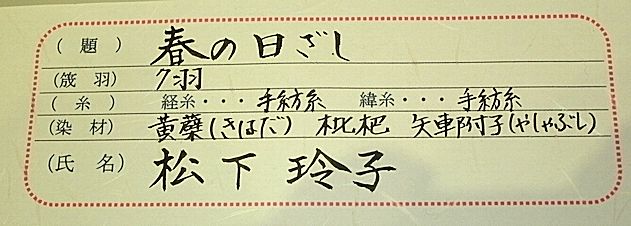 (題) 春の日ざし
(筬羽) 7羽
(糸) 経糸・・・手紡糸 緯糸・・・手紡糸
(染材) 黄蘗(きはだ) 枇杷 矢車附子(やしゃぶし)
(氏名) 松下玲子